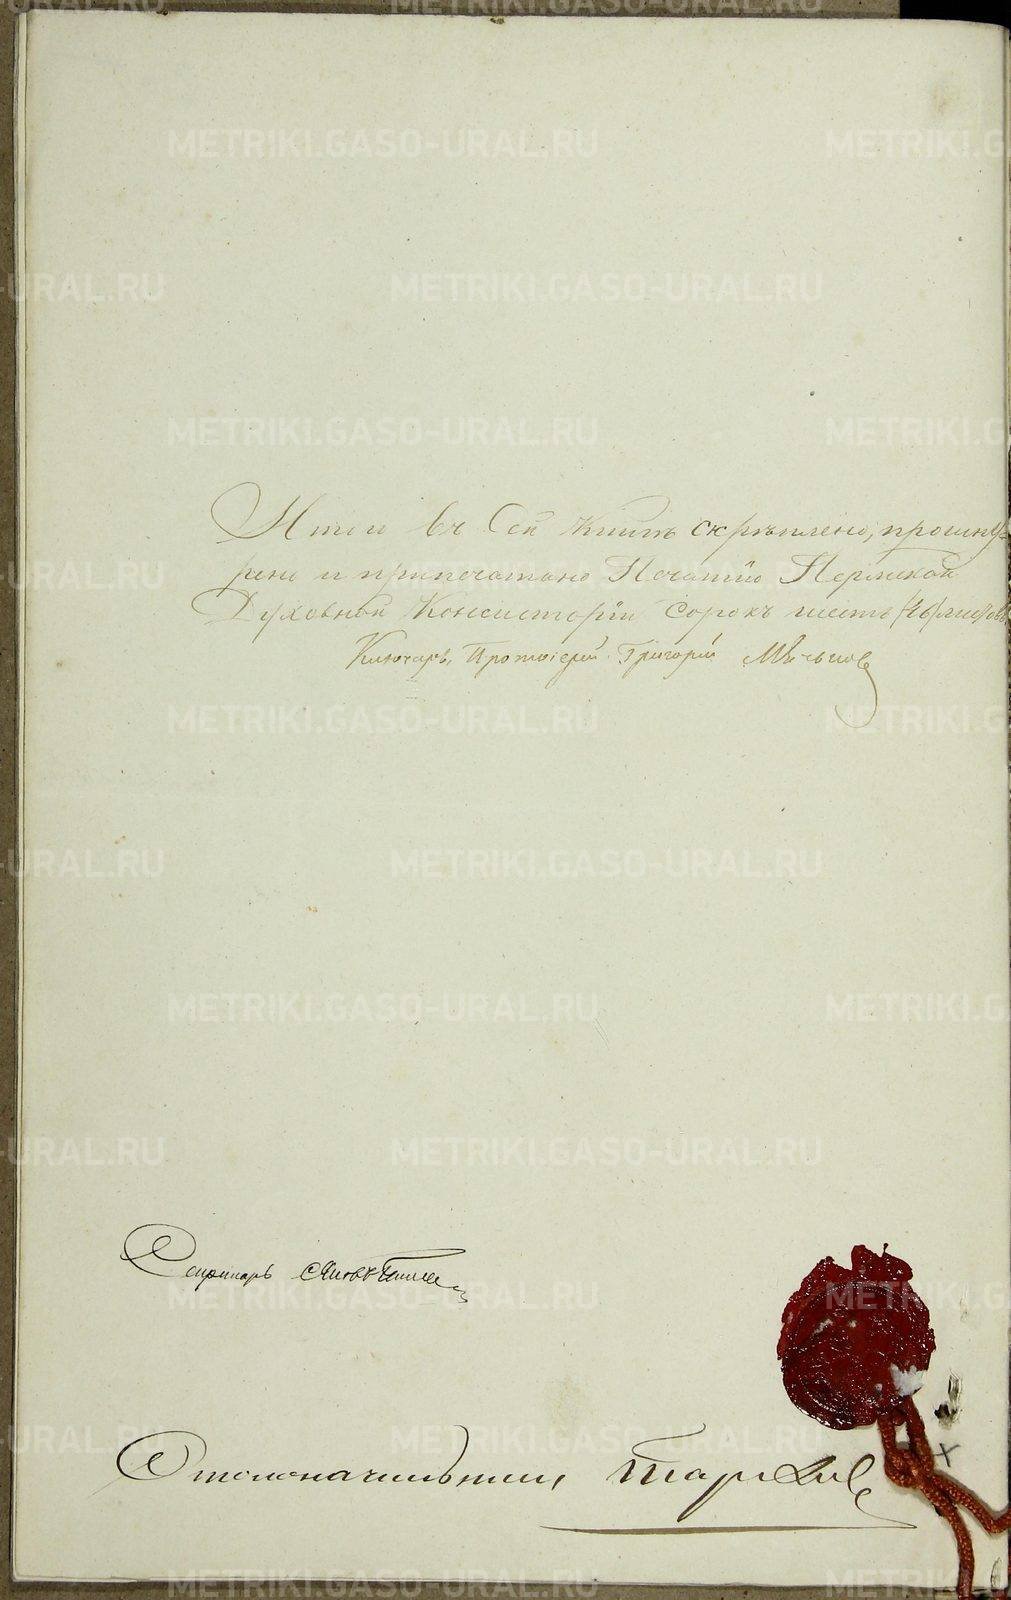 Итого въ Сей книгѣ скрѣплено, прошну=
рено и припечатано Печатію Пермской
Духовной Консисторіи сорокъ шесть (46) листовъ
Ключарь, Протоіерей Григорій
Секретарь
Столоначальникъ
METRIKI.GASO-URAL.RU